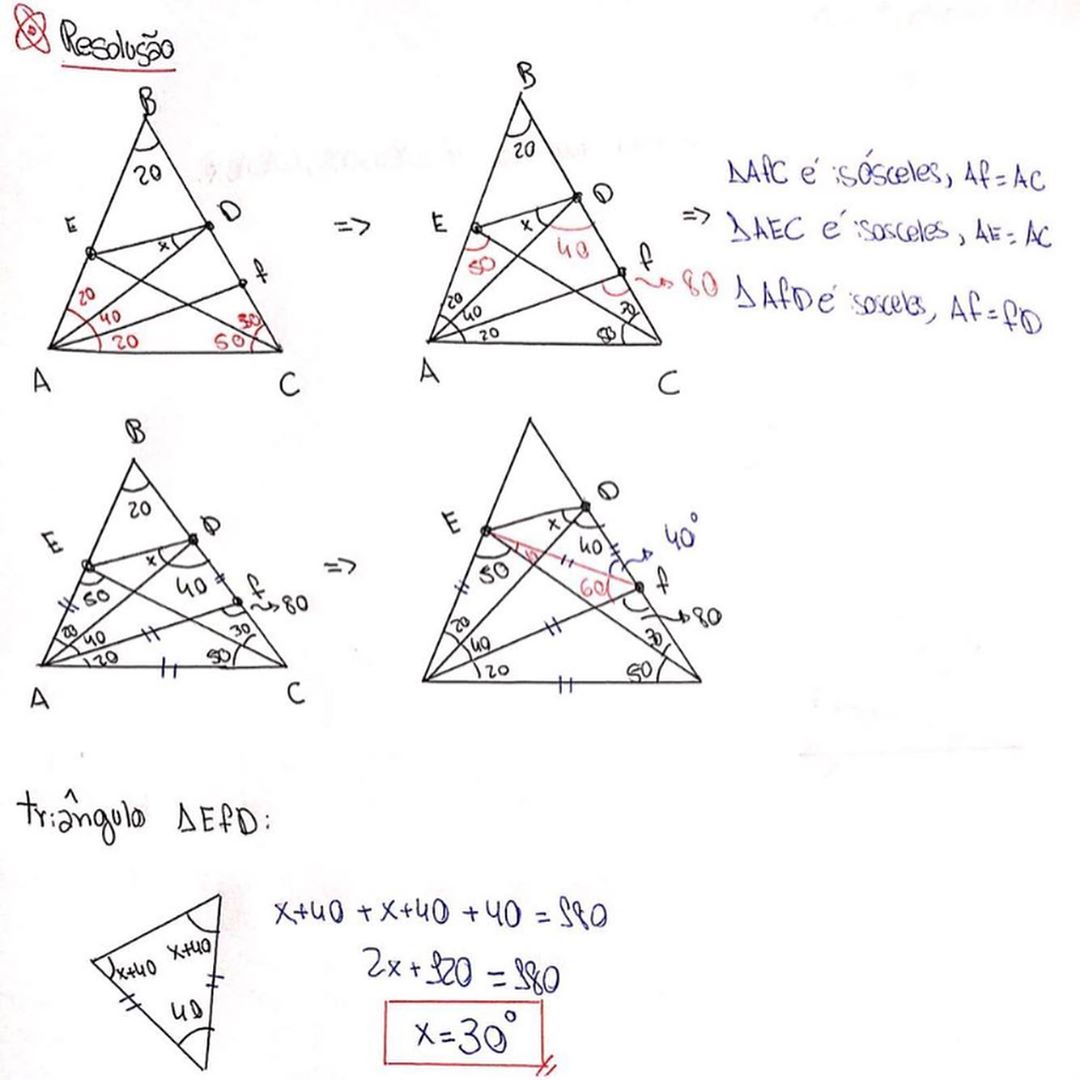 Resolução
B
20
E
D
x
f
20
40
20
30
50
A
C
=>
B
20
E
D
x
40
50
f
80
20
40
20
30
50
A
C
=>
ΔAfC é isósceles, Af=AC
ΔAEC é isosceles, AE=AC
ΔAfD é isosceles, Af=fD
B
20
E
D
x
40
50
f
80
20
40
20
30
50
A
C
=>
E
D
x
40
40°
50
60
f
80
20
40
20
30
50
triângulo ΔEfD:
x+40
x+40
40
x+40 + x+40 + 40 = 180
2x + 120 = 180
x=30°